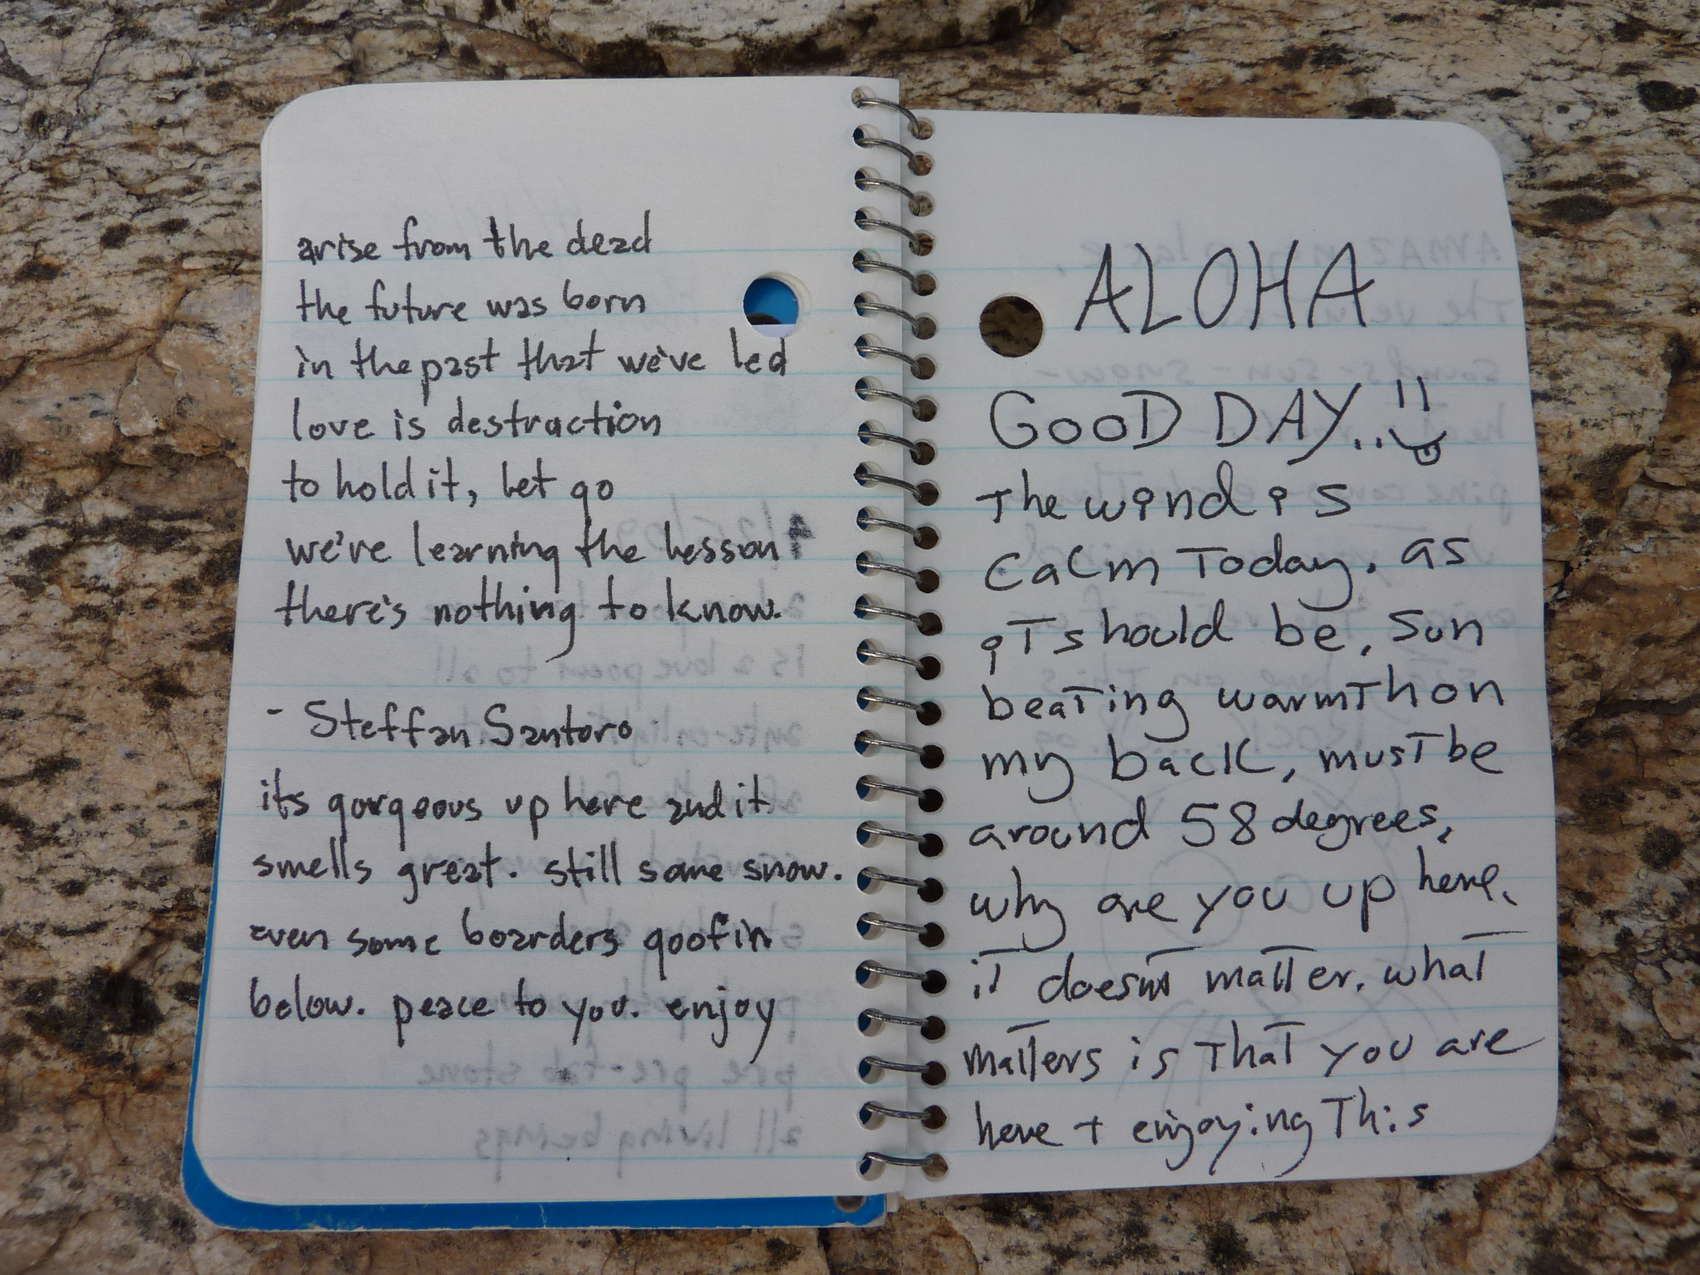 arise from the dead
the future was born
in the past that we've led
love is destraction
to hold it, let go
we're learning the lesson
there's nothing to know.
- Steffan Santoro
its gorgeous up here and it
smells great. still some snow.
even some boarders goofin
below. peace to you. enjoy
ALOHA
GOOD DAY..
The wind is
calm Today. as
iT should be, sun
beaTing warmTh on
my back, musT be
around 58 degrees,
why are you up here,
iT doesnt maTTer. whaT
maTTers is ThaT you are
here + enjoying This